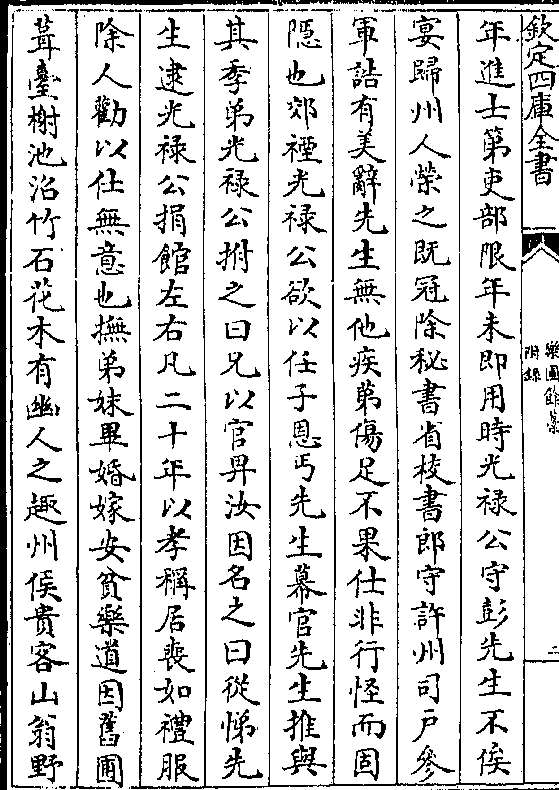 欽定四庫全書
樂圃餘藁
附錄
二
年進士第吏部限年未即用時光祿公守彭先生不俟
宴歸州人榮之既冠除秘書省校書郎守許州司戶參
軍誥有美辭先生無他疾弟傷足不果仕非行怪而固
隱也郊禋光祿公欲以任子恩丐先生幕官先生推與
其季弟光祿公拊之曰兄以官畀汝因名之曰從悌先
生逮光祿公捐館左右凡二十年以孝稱居喪如禮服
除人勸以仕無意也撫弟妹畢婚嫁安貧樂道因舊圃
葺臺榭池沼竹石花木有幽人之趣州侯貴客山翁野